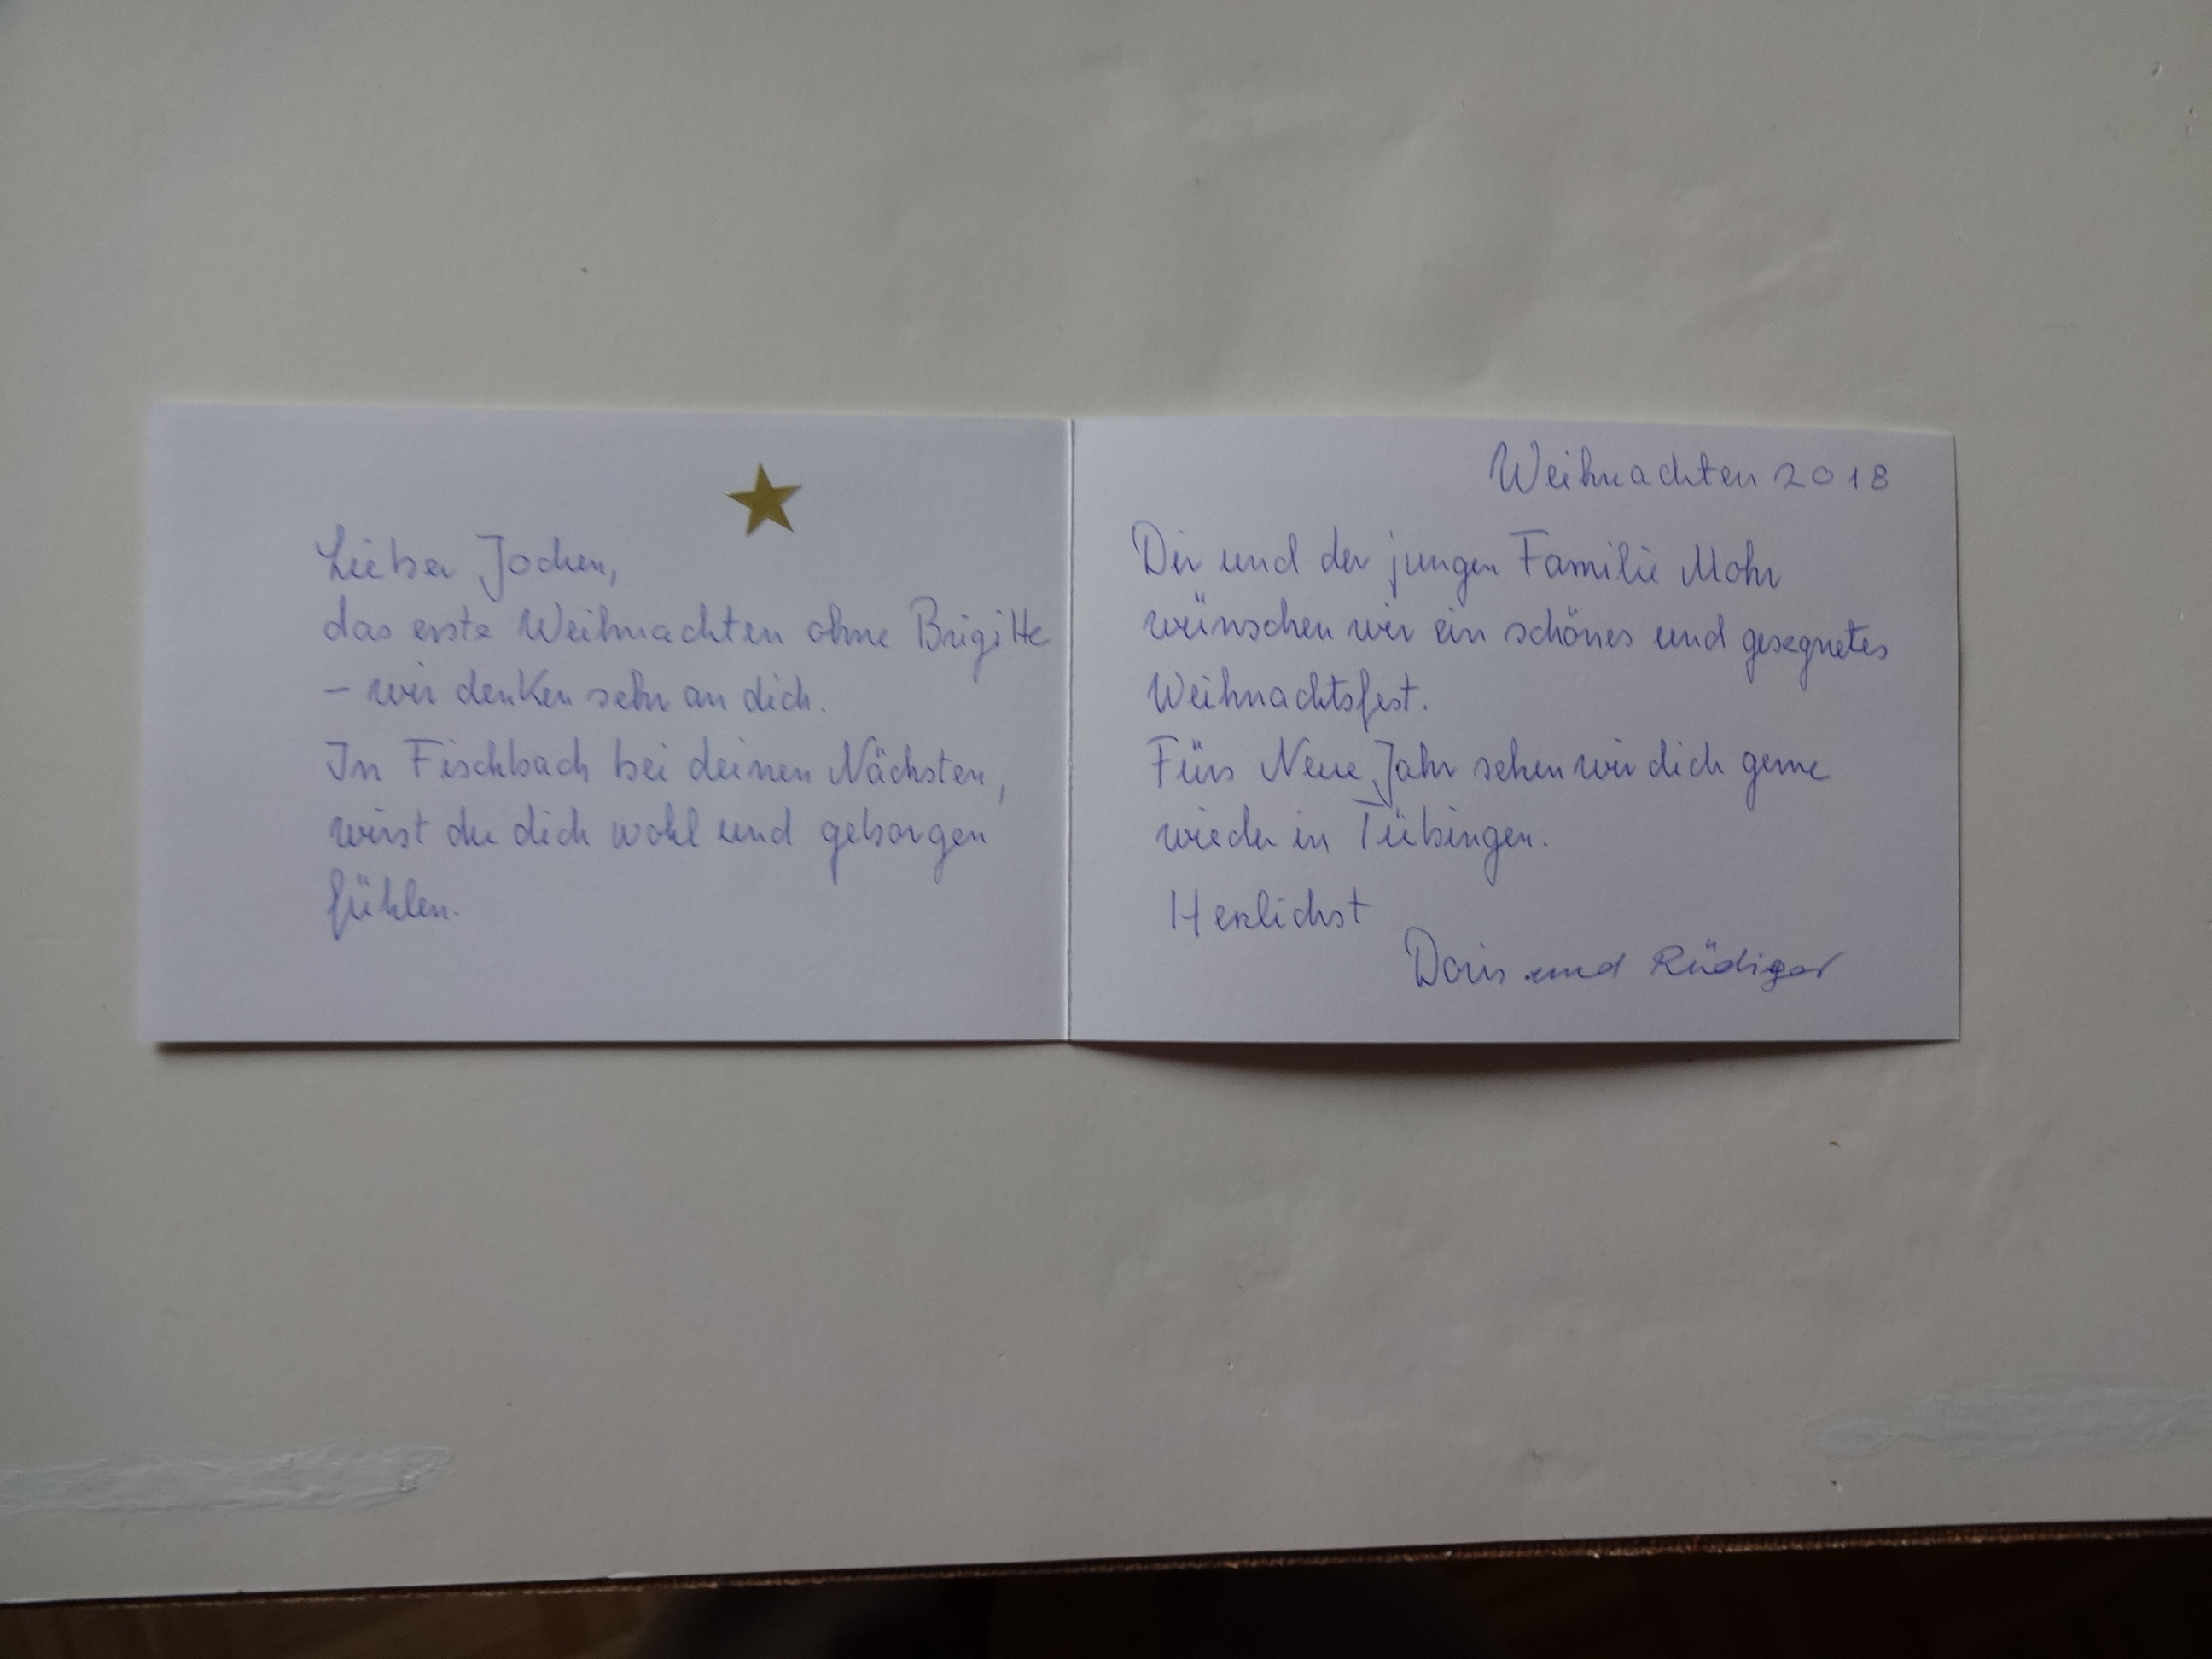 Lieber Jochen,
das erste Weihnachten ohne Brigitte
– wir denken sehr an dich.
In Fischbach bei deinen Nächsten,
wirst du dich wohl und geborgen
fühlen.
Weihnachten 2018
Dir und der jungen Familie Mohr
wünschen wir ein schönes und gesegnetes
Weihnachtsfest.
Fürs Neue Jahr sehen wir dich gerne
wieder in Tübingen.
Herzlichst
Doris und Rüdiger